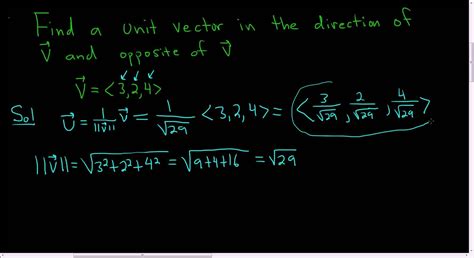 Find a unit vector in the direction of
v⃗ and opposite of v⃗
v⃗ = <3,2,4>
Sol u⃗ = 1/||v⃗|| v⃗ = 1/√29 <3,2,4> = <3/√29, 2/√29, 4/√29>
||v⃗|| = √(3²+2²+4²) = √(9+4+16) = √29